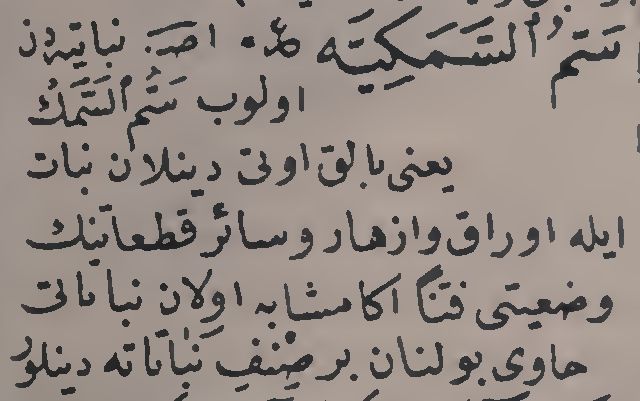 سَمُّ ٱلسَّمَكِيَّه ‮ ‬اصـ. نباتيه‌دن
اولوب سَمُّ ٱلسَّمَكْ
يعنى بالق اوتى دينلان نبات
ايله اوراق وازهار وسائر قطعاتنك
وضعيتى فتنًا اكا مشابه اولان نباتاتى
حاوى بولنان بر صِنْفِ نَبَاتَاته دينلور